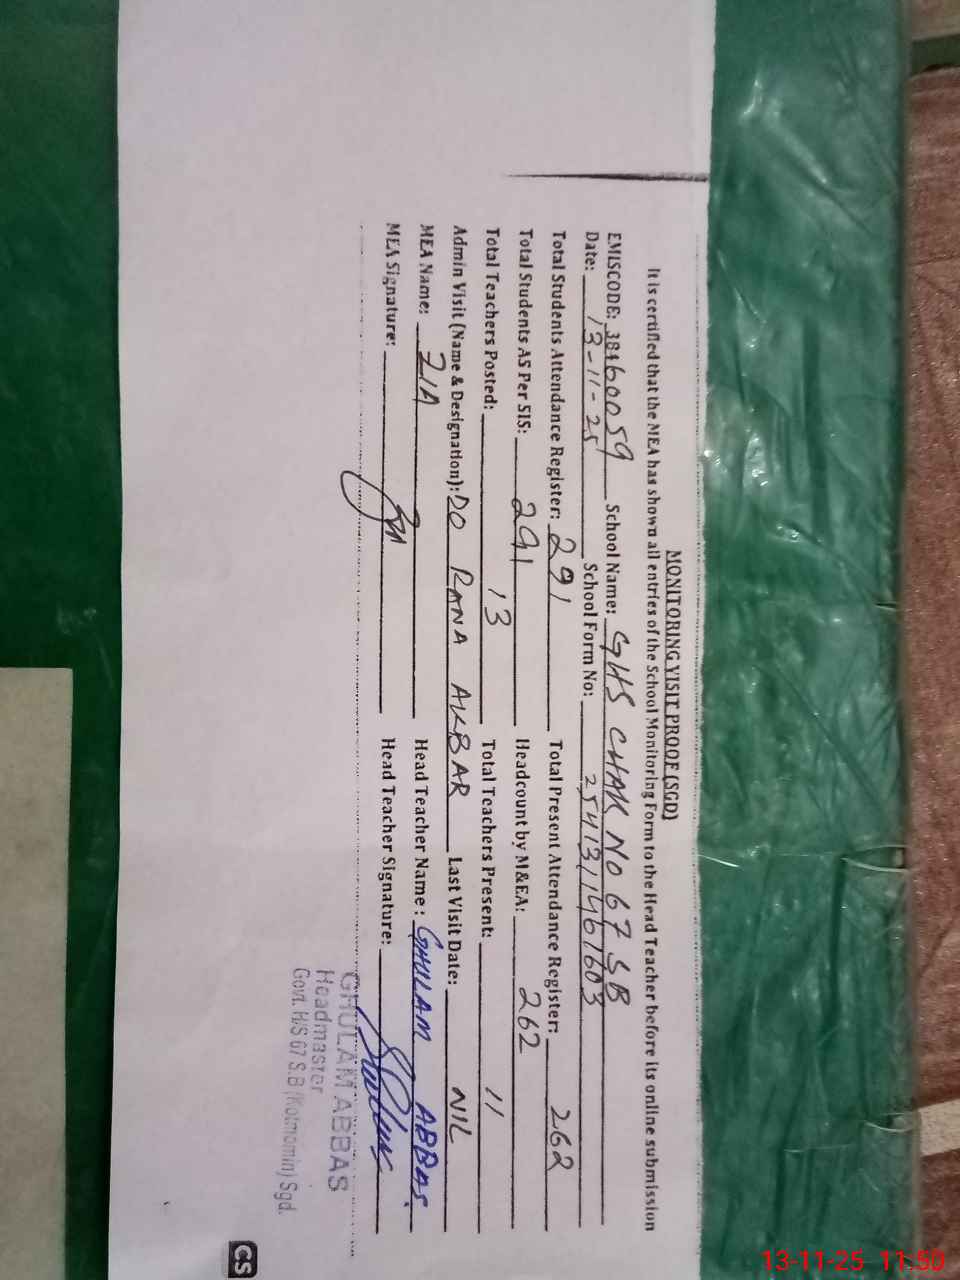 MONITORING VISIT PROOF (SGD)
It is certified that the MEA has shown all entries of the School Monitoring Form to the Head Teacher before its online submission
EMISCODE: 38460059 School Name: GHS CHAK NO 67 SB
Date: 13-11-25 School Form No: 2541311461603
Total Students Attendance Register: 291 Total Present Attendance Register: 262
Total Students AS Per SIS: 291 Headcount by M&EA: 262
Total Teachers Posted: 13 Total Teachers Present: 11
Admin Visit (Name & Designation): DO RANA AKBAR Last Visit Date: NIL
MEA Name: ZIA Head Teacher Name: GHULAM ABBAS.
MEA Signature: Head Teacher Signature:
GHULAM ABBAS
Headmaster
Govt. H/S 67 S.B (Kotmomin) Sgd.
CS
13-11-25 11:50